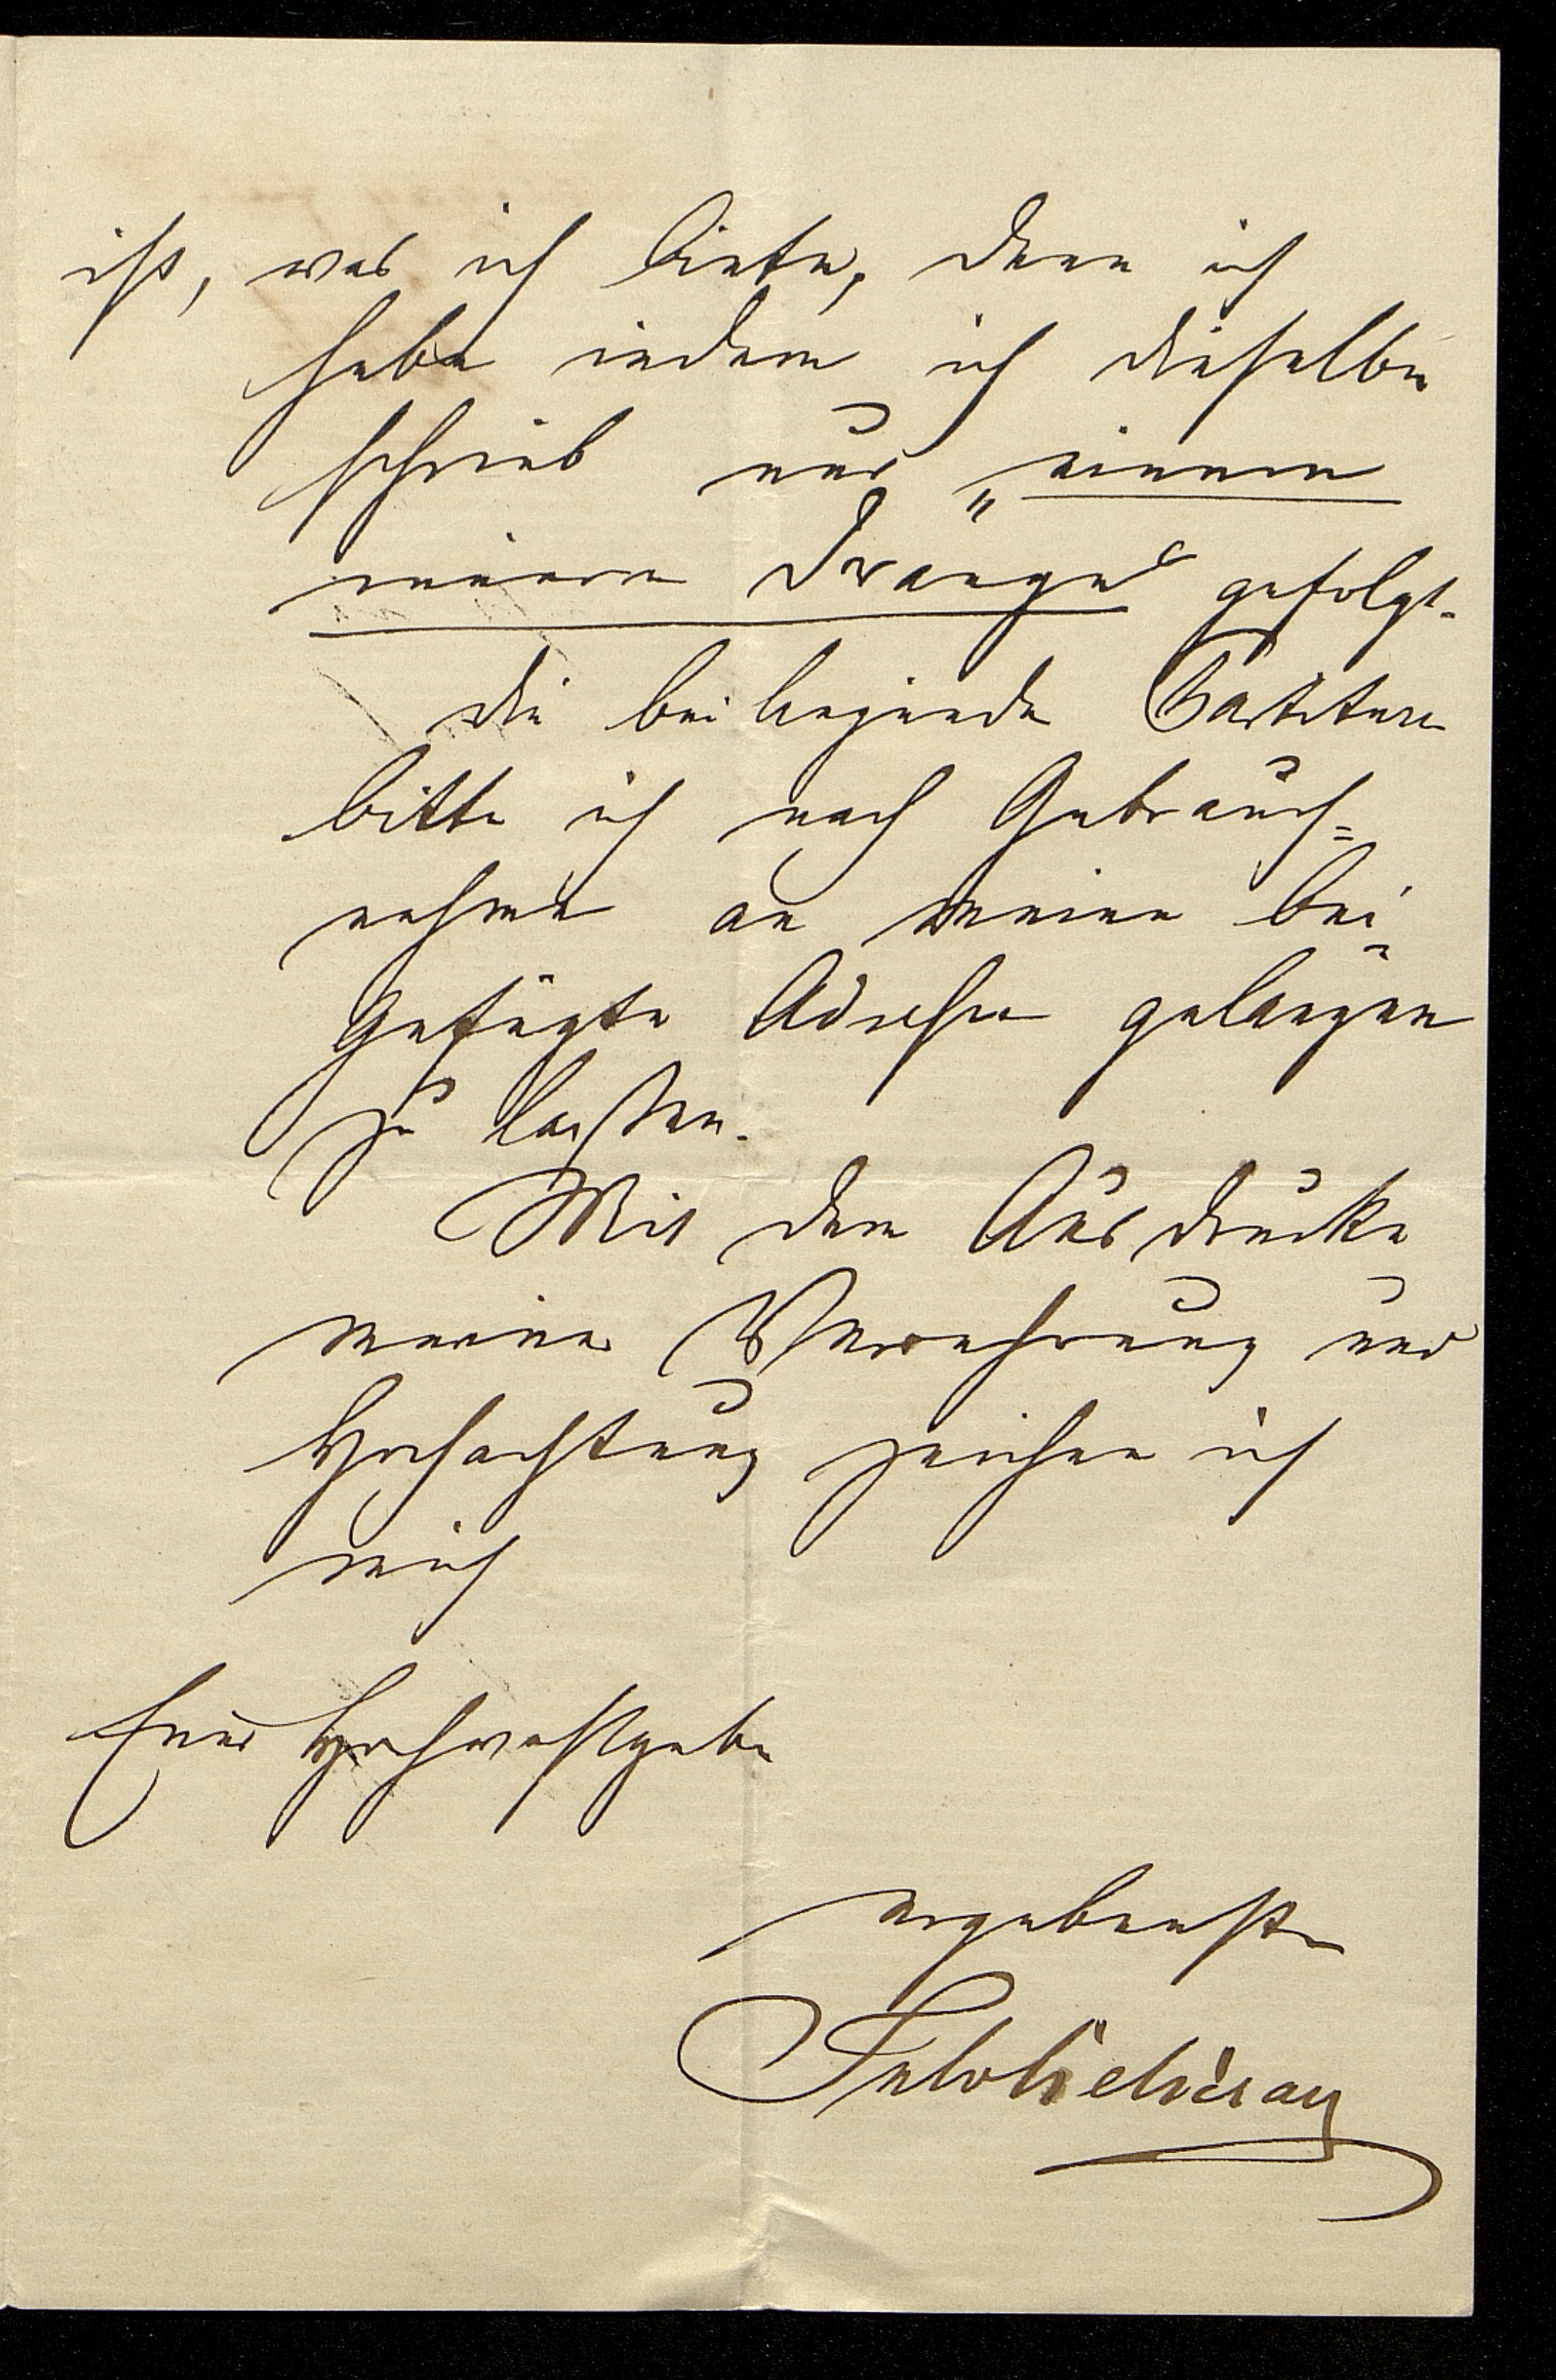 ist, was ich biete, denn ich
habe indem ich dieselbe
schrieb nur „einem
innern Drange“ gefolgt.
Die beiliegende Partitur
bitte ich nach Gebrauch=
nahme an meine bei=
gefügte Adresse gelangen
zu lassen.
Mit dem Ausdrucke
meiner Verehrung und
Hochachtung zeichne ich
mich
Euer Hochwohlgeb
ergebenster